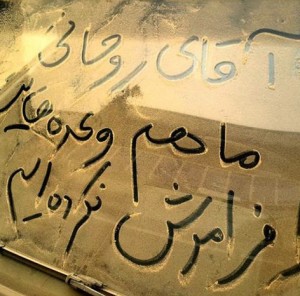 آقای روحانی
ما هم وعده هایت
را فراموش نکرده ایم